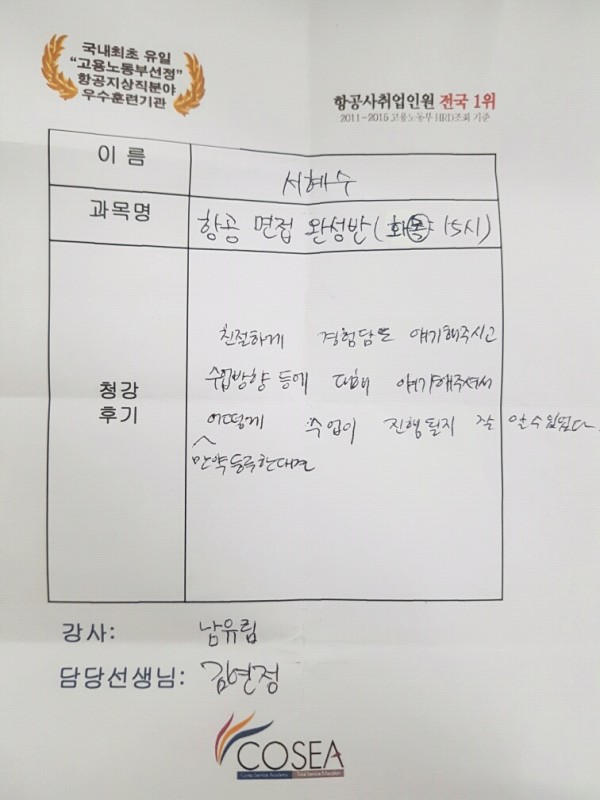 국내최초 유일
"고용노동부선정"
항공지상직분야
우수훈련기관
항공사취업인원 전국 1위
2011-2015 고용노동부 HRD조회 기준
이 름
서혜수
과목명
항공 면접 완성반 (화목 15시)
청강
후기
친절하게 경험담도 얘기해주시고
수업방향 등에 대해 얘기해주셔서
어떻게 수업이 진행될지 잘 알수있었다.
만약등록한다면
강사: 남유림
담당선생님: 김연정
COSEA
Korea Service Academy Total Service Education